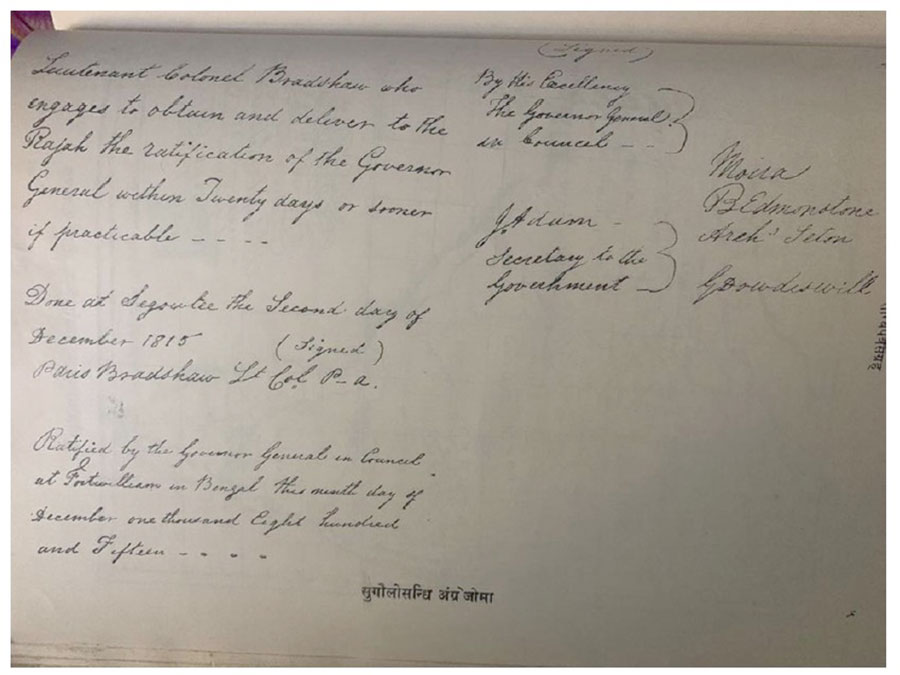 Lieutenant Colonel Bradshaw who
engages to obtain and deliver to the
Rajah the ratification of the Governor
General within Twenty days or sooner
if practicable - - - -
Done at Segowlee the Second day of
December 1815 (Signed)
Paris Bradshaw Lt Col. P-a.
Ratified by the Governor General in Council
at Fortwilliam in Bengal this ninth day of
December one thousand Eight hundred
and Fifteen - - - -
(Signed)
By His Excellency
The Governor General
in Council - -
J Adam -
Secretary to the
Government -
Moira
B Edmonstone
Archd Seton
G Dowdeswill
सुगौलीसन्धि अंग्रेजीमा